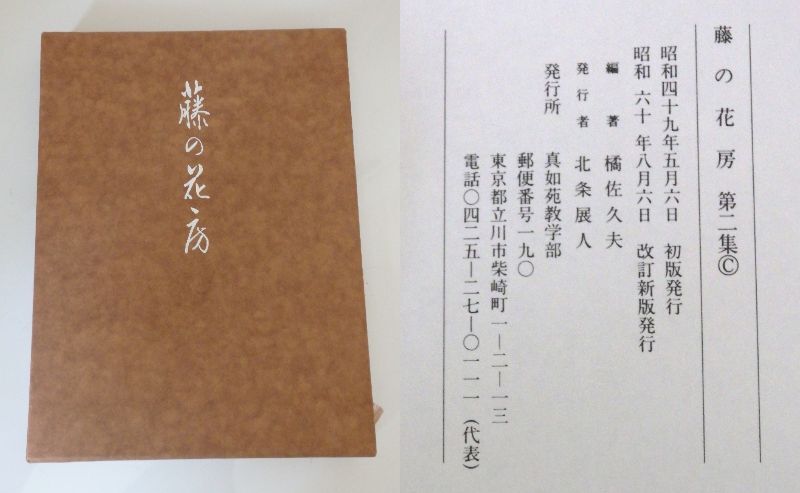 藤の花房
藤の花房 第二集©
昭和四十九年五月六日 初版発行
昭和 六十 年八月六日 改訂新版発行
編著 橘佐久夫
発行者 北条展人
発行所 真如苑教学部
郵便番号一九〇
東京都立川市柴崎町一—二—一三
電話〇四二五—二七—〇一一一(代表)